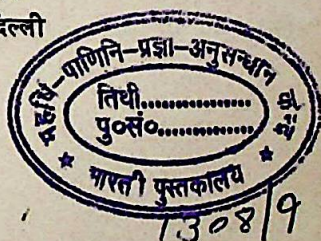 दिल्ली
महर्षि-पाणिनि-प्रज्ञा-अनुसन्धान केन्द्र
तिथी................
पु०सं०...............
* भारती पुस्तकालय *
1308/9